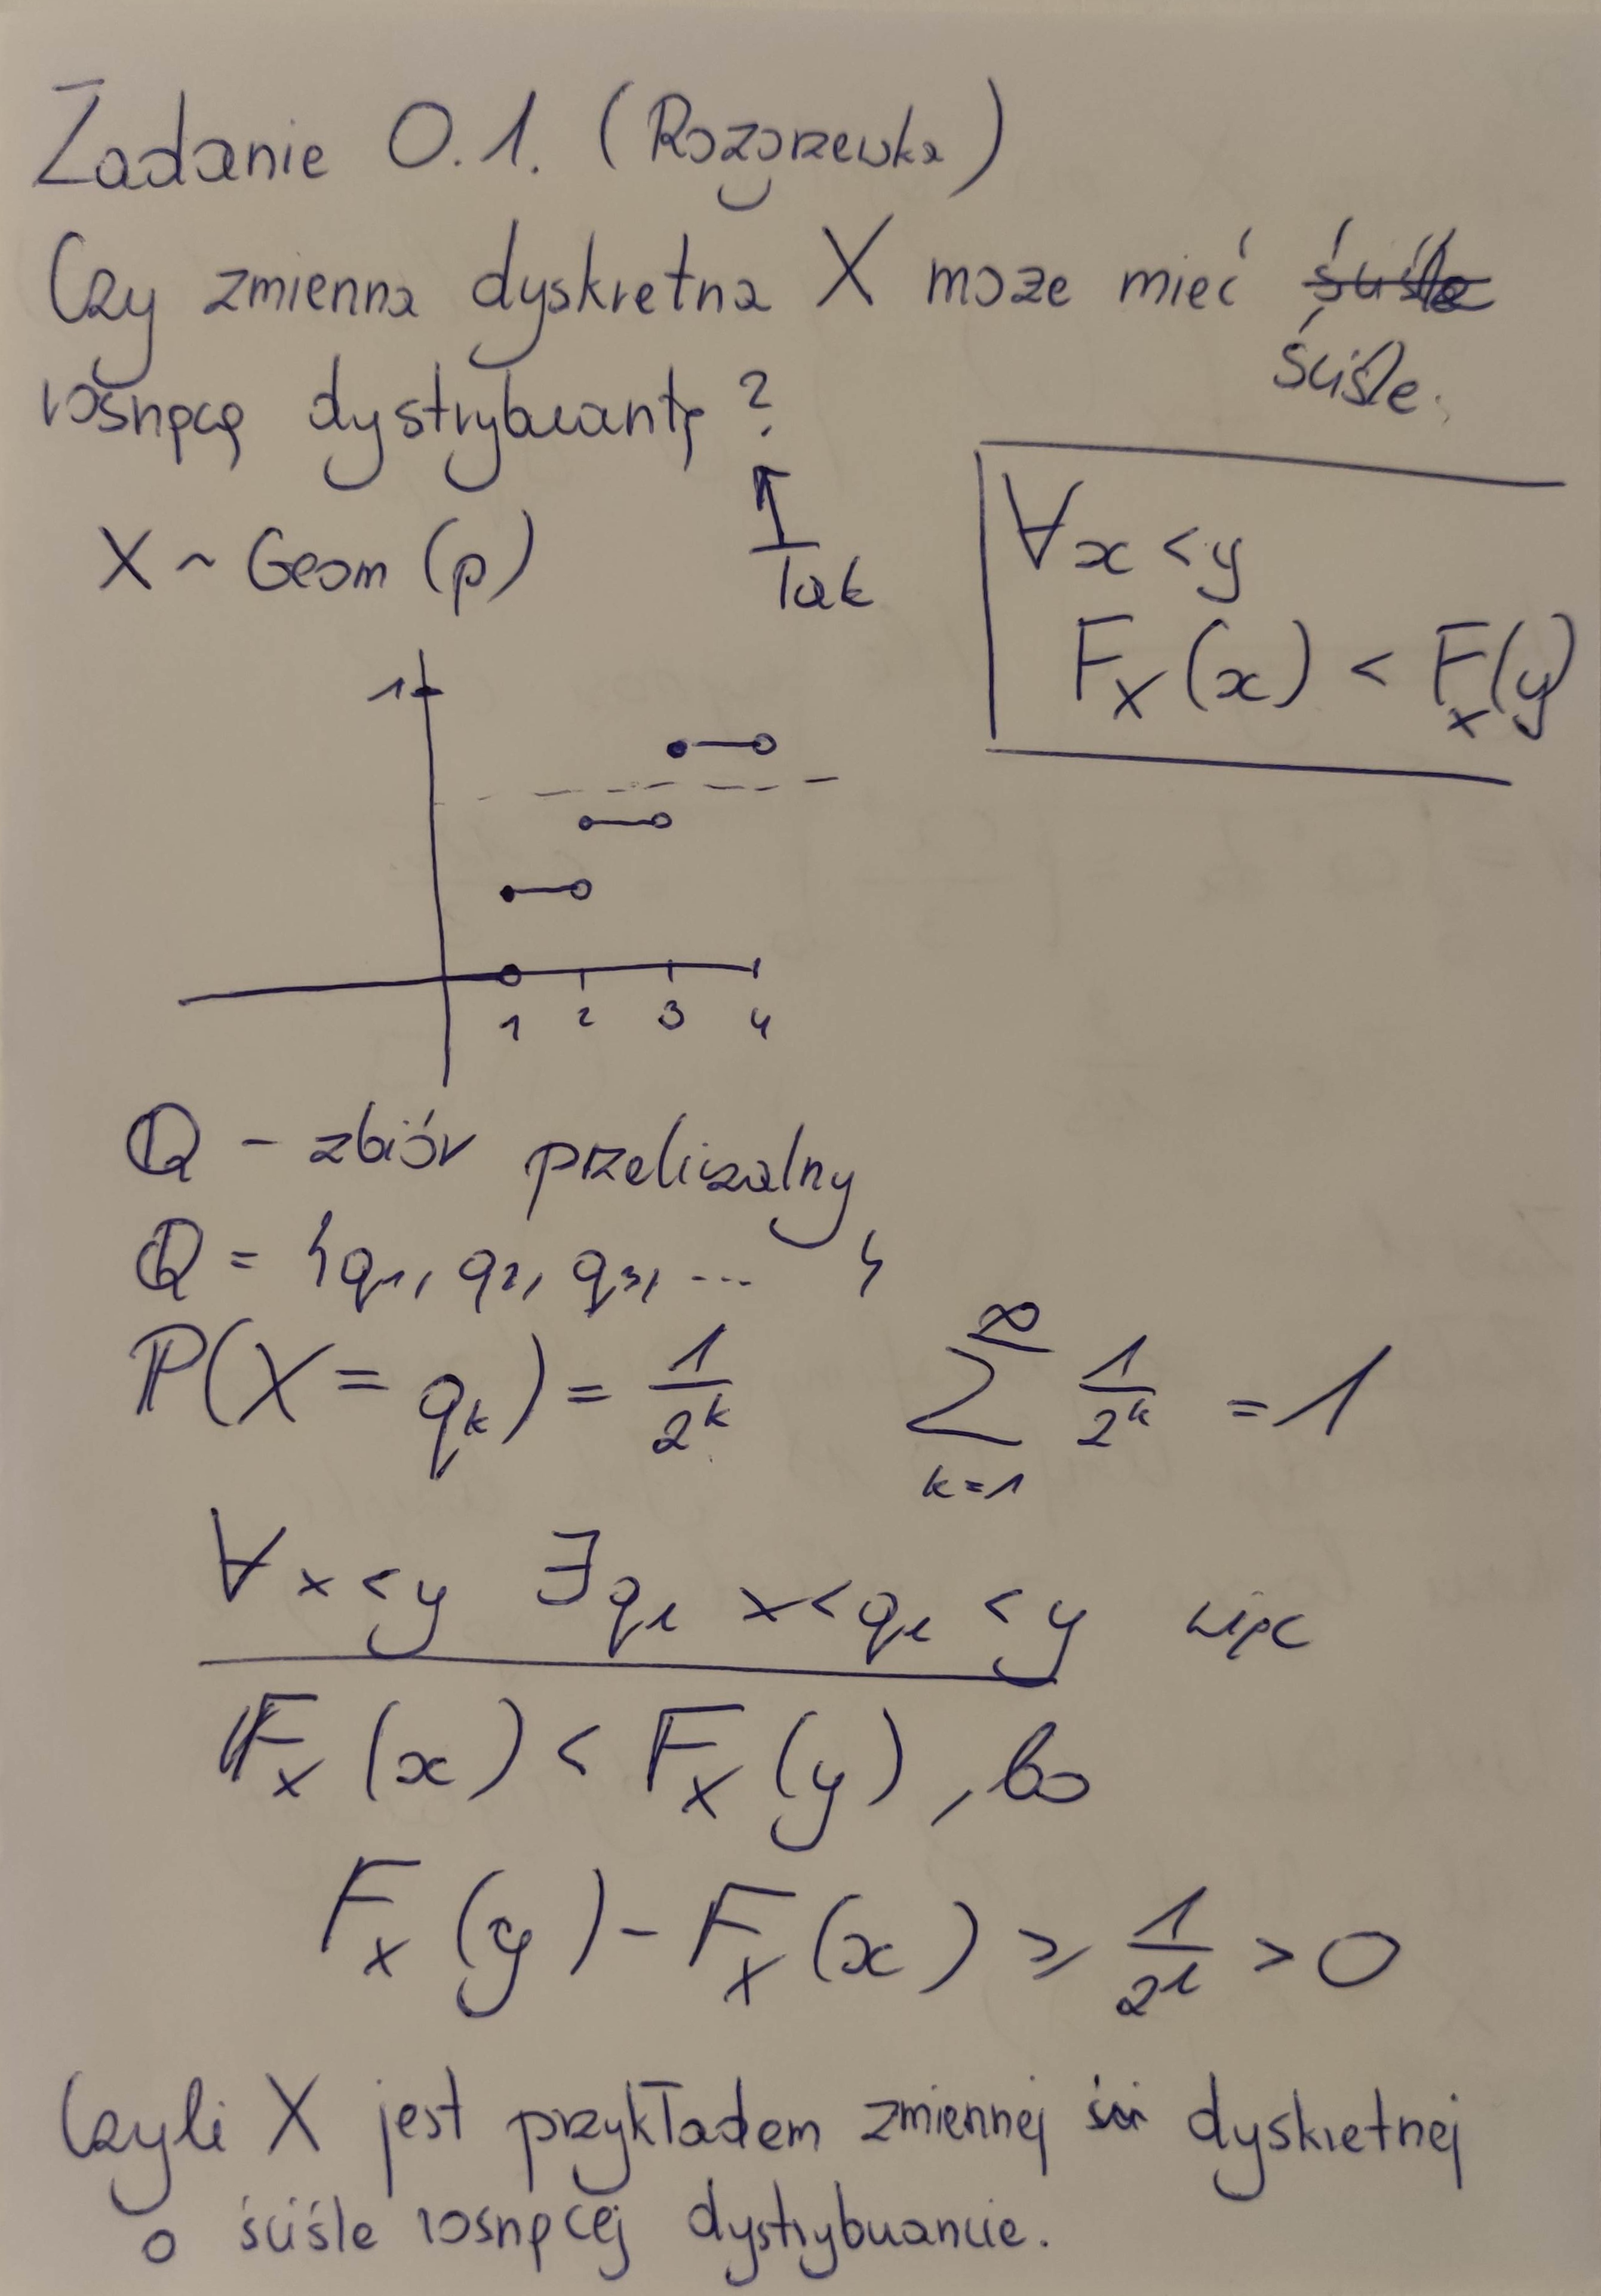 Zadanie 0.1. (Rozgrzewka)
Czy zmienna dyskretna X może mieć ściśle
ściśle.
rosnącą dystrybuantę?
X ~ Geom (p)
Tak
∀x < y
F_X(x) < F_X(y)
1
1 2 3 4
ℚ - zbiór przeliczalny
ℚ = {q₁, q₂, q₃, ... }
ℙ(X = q_k) = 1/2^k ∑_{k=1}^{∞} 1/2^k = 1
∀ x < y ∃ q_l x < q_l < y więc
F_X(x) < F_X(y), bo
F_X(y) - F_X(x) ≥ 1/2^l > 0
Czyli X jest przykładem zmiennej dyskretnej
o ściśle rosnącej dystrybuancie.